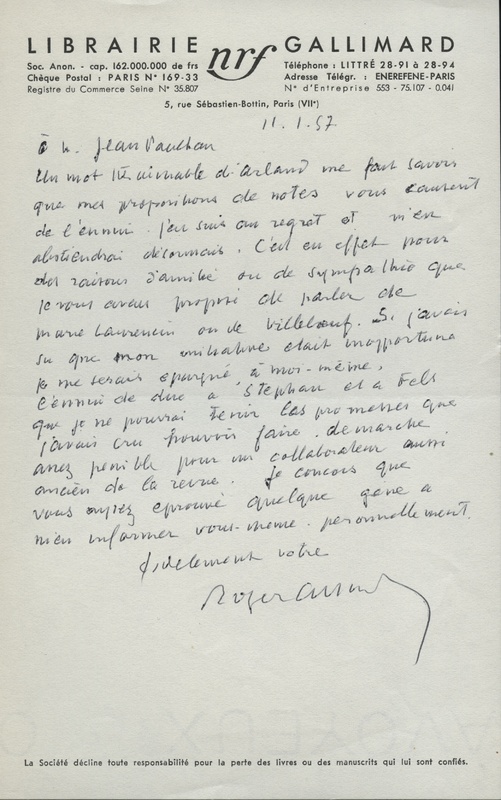 LIBRAIRIE nrf GALLIMARD
Soc. Anon. - cap. 162.000.000 de frs Téléphone : LITTRÉ 28-91 à 28-94
Chèque Postal : PARIS N° 169-33 Adresse Télégr. : ENEREFENE-PARIS
Registre du Commerce Seine N° 35.807 N° d'Entreprise 553 - 75.107 - 0.041
5, rue Sébastien-Bottin, Paris (VIIe)
11.1.57
à M. Jean Paulhan
Un mot très aimable d'Arland me fait savoir
que mes propositions de notes vous causent
de l'ennui. J'en suis au regret et m'en
abstiendrai désormais. C'est en effet pour
des raisons d'amitié ou de sympathie que
je vous avais proposé de parler de
Marie Laurencin ou de Villebœuf. Si j'avais
su que mon initiative était inopportune
je me serais épargné à moi-même,
l'ennui de dire à Stéphan et à Fels
que je ne pourrai tenir les promesses que
j'avais cru pouvoir faire. démarche
assez pénible pour un collaborateur aussi
ancien de la revue. Je conçois que
vous ayez éprouvé quelque gêne à
m'en informer vous-même. personnellement.
fidèlement votre
Roger
La Société décline toute responsabilité pour la perte des livres ou des manuscrits qui lui sont confiés.